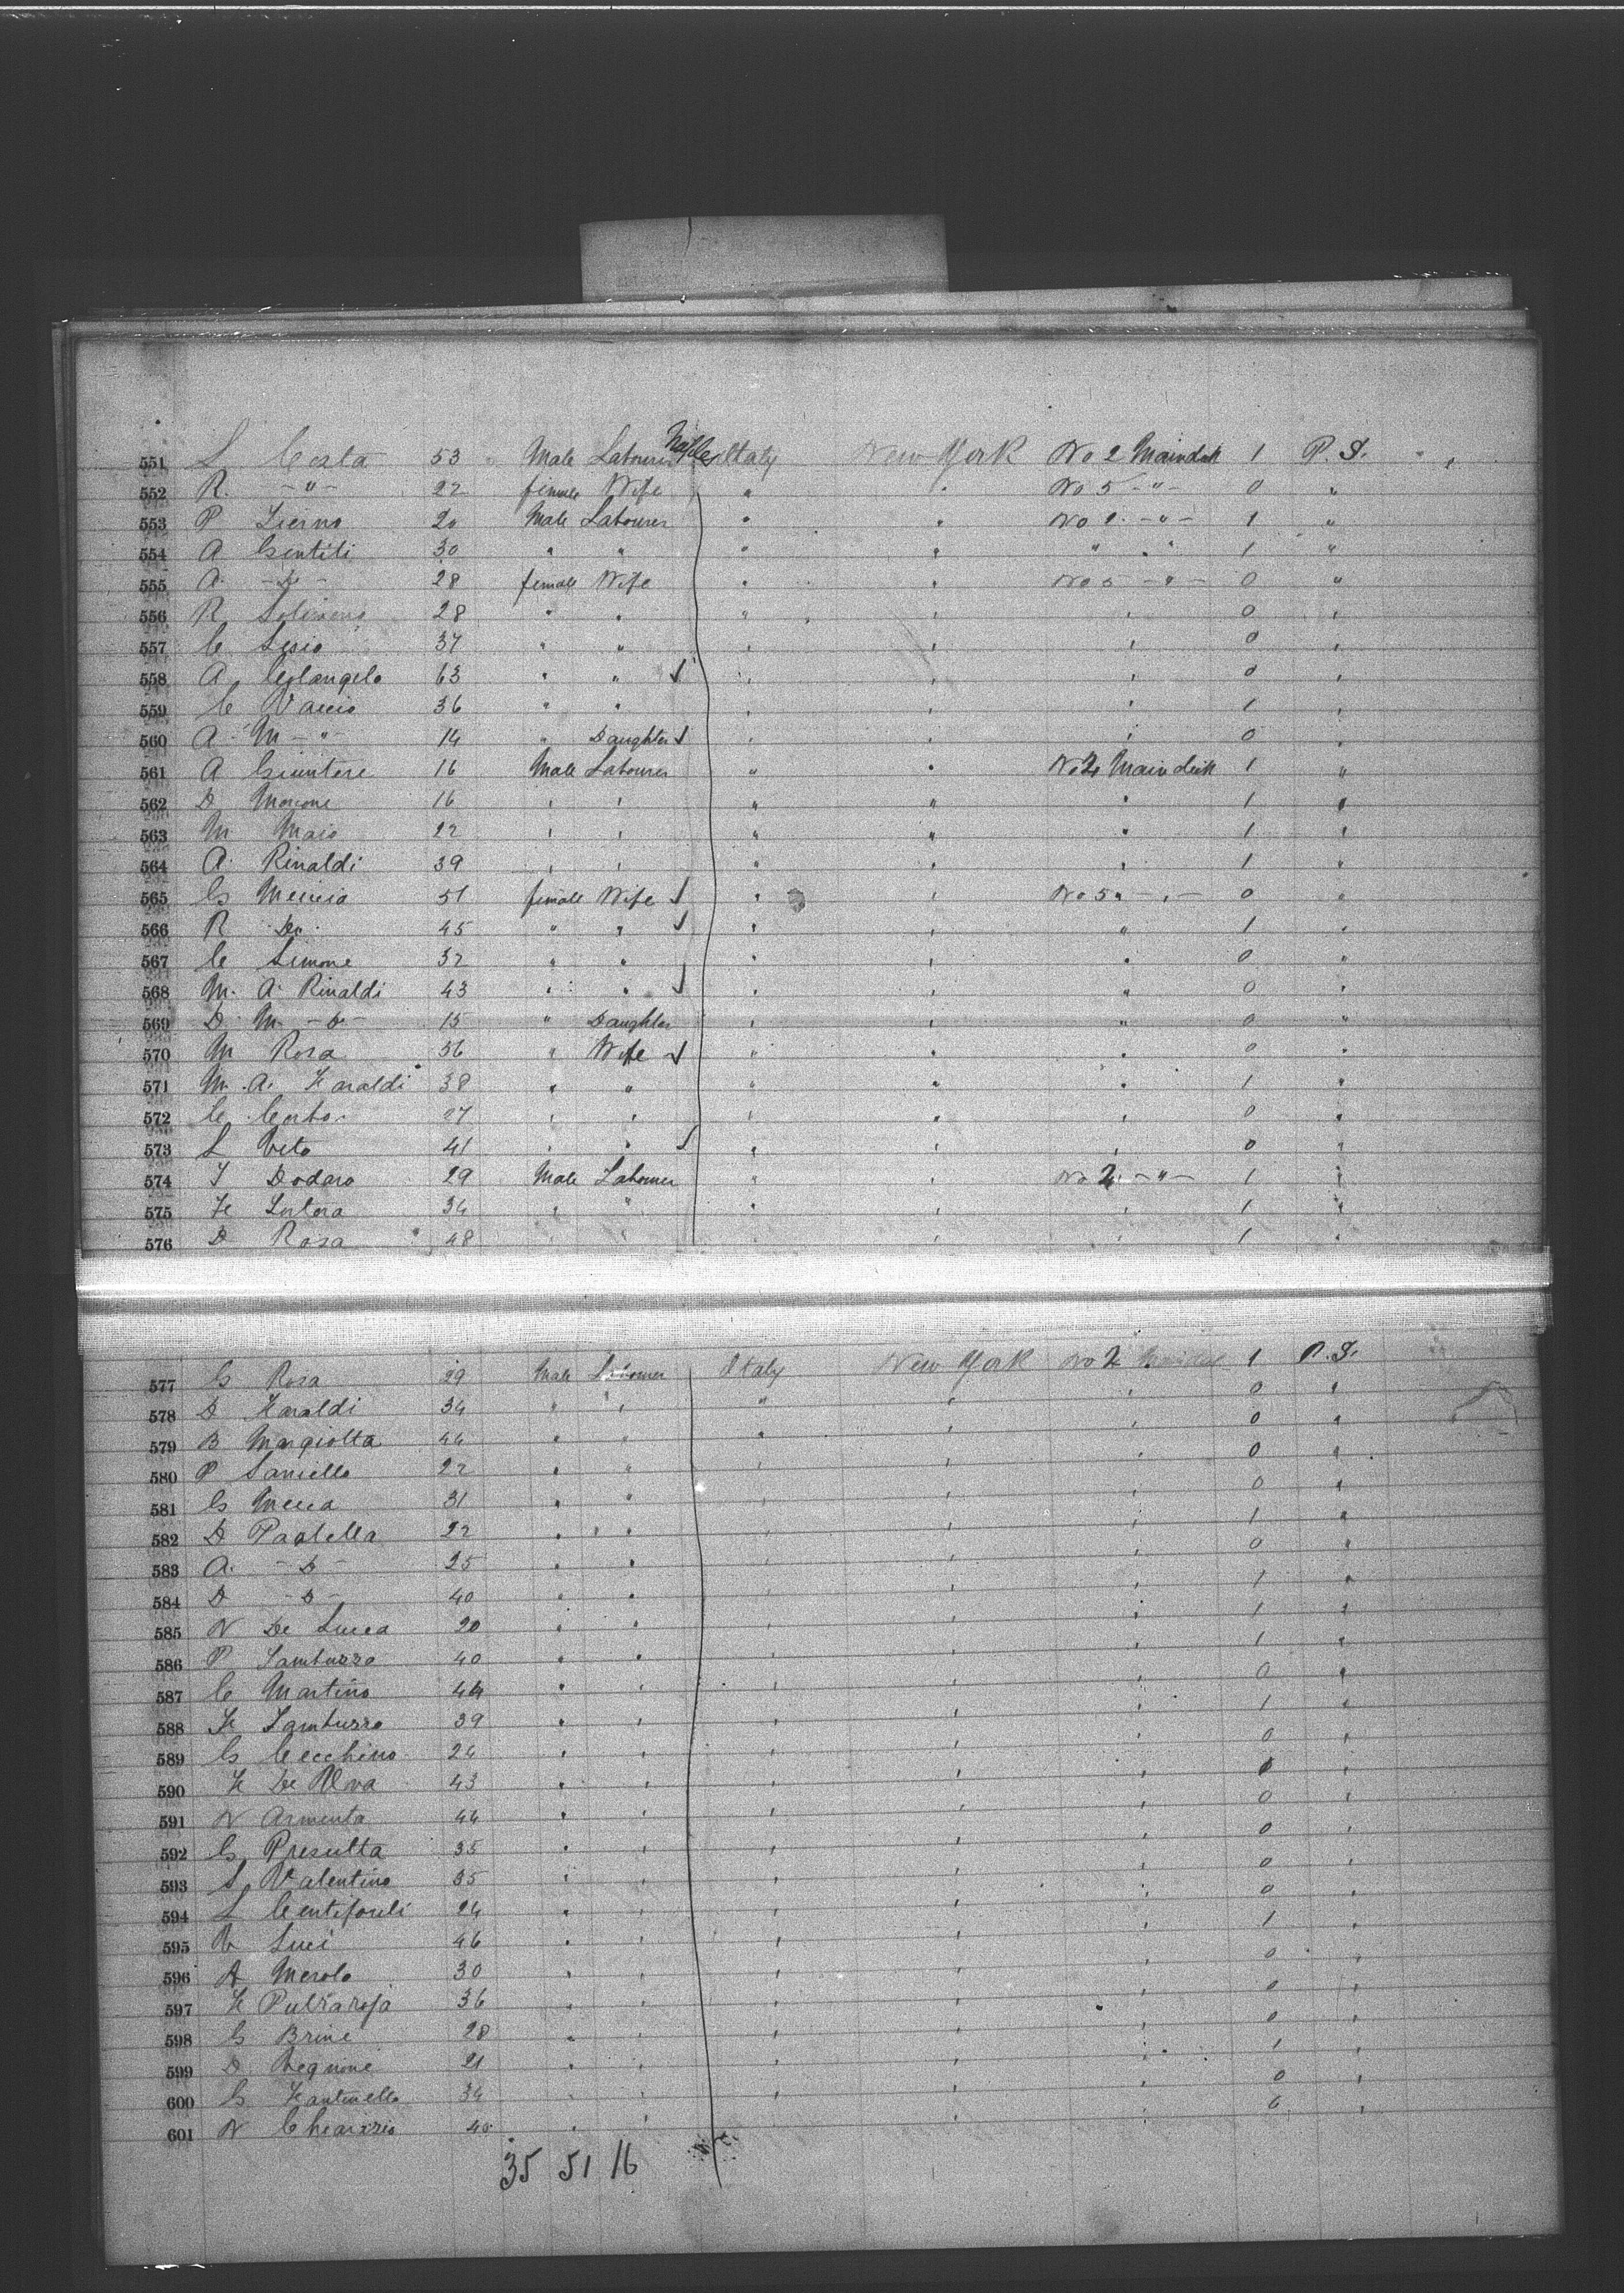 551 L Costa 53 Male Labourer Naples Italy New York No 2 Maindeck 1 P. S. "
552 R. -"- 22 female Wife " " No 5 -"- 0 "
553 P Zierno 20 Male Labourer " " No 1. -"- 1 "
554 A Gentili 30 " " " " " " 1 "
555 A. -Do- 28 female Wife " " No 5 -"- 0 "
556 R 28 " " " " " 0 "
557 C Sesio 37 " " " " " 0 "
558 A. Colangelo 63 " " ✓ " " " 0 "
559 C Vaccio 36 " " " " " 1 "
560 A. M -"- 14 " Daughter ✓ " " " 0 "
561 A Giuntore 16 Male Labourer " " No 2 Maindeck 1 "
562 D Morcone 16 " " " " " 1 "
563 M Maio 22 " " " " " 1 "
564 A. Rinaldi 39 " " " " " 1 "
565 G Meccia 51 female Wife ✓ " " No 5 " -"- 0 "
566 R Do. 45 " " ✓ " " " 1 "
567 C Simone 32 " " " " " 0 "
568 M. A. Rinaldi 43 " " ✓ " " " 0 "
569 D. M. -Do- 15 " Daughter " " " 0 "
570 M Rosa 56 " Wife ✓ " " " 0 "
571 M. A. Faraldi 38 " " " " " 1 "
572 C Corbo 27 " " " " " 0 "
573 L Vito 41 " " ✓ " " " 0 "
574 I Dodaro 29 Male Labourer " " No 2 -"- 1 "
575 F Lortora 34 " " " " " 1 "
576 D Rosa 48 " " " " " 1 "
577 G Rosa 29 Male Labourer Italy New York No 2 Maindeck 1 P. S.
578 D Faraldi 34 " " " " " 0 "
579 B Margiotta 44 " " " " " 0 "
580 P Saniello 22 " " " " " 0 "
581 G Mecca 31 " " " " " 0 "
582 D Paolella 22 " " " " " 1 "
583 A. -Do- 25 " " " " " 0 "
584 D -Do- 40 " " " " " 1 "
585 N De Lucca 20 " " " " " 1 "
586 P Iamburro 40 " " " " " 1 "
587 C Martino 44 " " " " " 0 "
588 F Iamburro 39 " " " " " 1 "
589 G Cecchino 24 " " " " " 0 "
590 F De 43 " " " " " "
591 N Armenta 44 " " " " " 0 "
592 G Presutta 35 " " " " " 0 "
593 S Valentino 35 " " " " " 0 "
594 L Centifonli 24 " " " " " 0 "
595 V Luci 46 " " " " " 1 "
596 A Merolo 30 " " " " " 0 "
597 F 36 " " " " " 0 "
598 G Brine 28 " " " " " 0 "
599 D Vegnone 21 " " " " " 1 "
600 G Fantinello 34 " " " " " 0 "
601 N 40 " " " " " 0 "
35 51 16